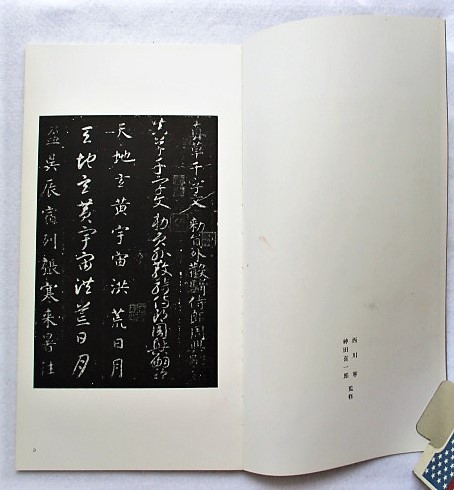 西川寧
神田喜一郎 監修
真草千字文 勅員外散騎侍郎周興嗣
真草千字文 勅員外散騎侍郎周興嗣次
天地玄黄宇宙洪荒日月
天地玄黄宇宙洪荒日月
盈昃辰宿列張寒来暑往